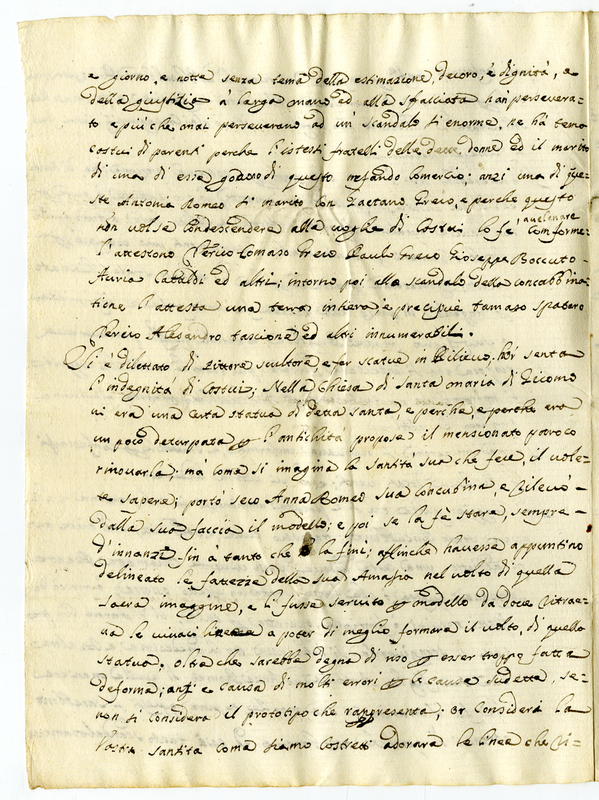 e giorno, e notte senza tema della estimazione, decoro, è dignità, e
della giustizia à larga mano ed alla sfacciata han persevera=
to e più che mai perseverano ad un scandalo si enorme, ne hà tema
costui di parenti perche l'istessi fratelli delle dette donne ed il marito
di una di esse godono di questo nefando Comercio; anzi una di que=
ste Antonia Romeo si maritò con Gaetano Greco, e perche questo
non volse condescendere alle voglie di Costui lo fè avelenare Comforme
l'attestono Clerico Tomaso Greco Paulo Greco Gioseppe Boccuto
Auria Cataldi ed altri; intorno poi allo scandalo della concubbina=
tione l'attesta una terra intiera, e precipuè Tomaso Spatero
Clerico Alesandro Fascione ed altri innumerabili.
Si è dilettato di Pittore scultore, e far statue in Rilievo, hor senta
l'indegnità di Costui; Nella Chiesa di Santa maria di
vi era una certa statua di detta santa, e perche, e perche era
un poco deturpata per l'antichità propose il mensionato paroco
rinovarla; mà come si imagina la Santità sua che fece, il vole=
te sapere; portò seco Anna Romeo sua Concubina, e rilevò
dalla sua faccia il modello; e poi se la fè stare, sempre
d'innanzi fin à tanto che la finì; affinche havesse appuntino
delineato le fattezze della sua Amasia nel volto di quella
sacra imaggine, e li fusse servito per modello da dove ritrae=
va le vivaci linee a poter di meglio formare il volto, di quella
statua, oltre che sarebbe degna di riso per esser troppo fatta
deforme; anzi e causa di molti errori per le cause sudette, se
non si considera il prototipo che rappresenta; or Consideri la
Vostra Santità come siamo Costretti adorare le linee che ri=